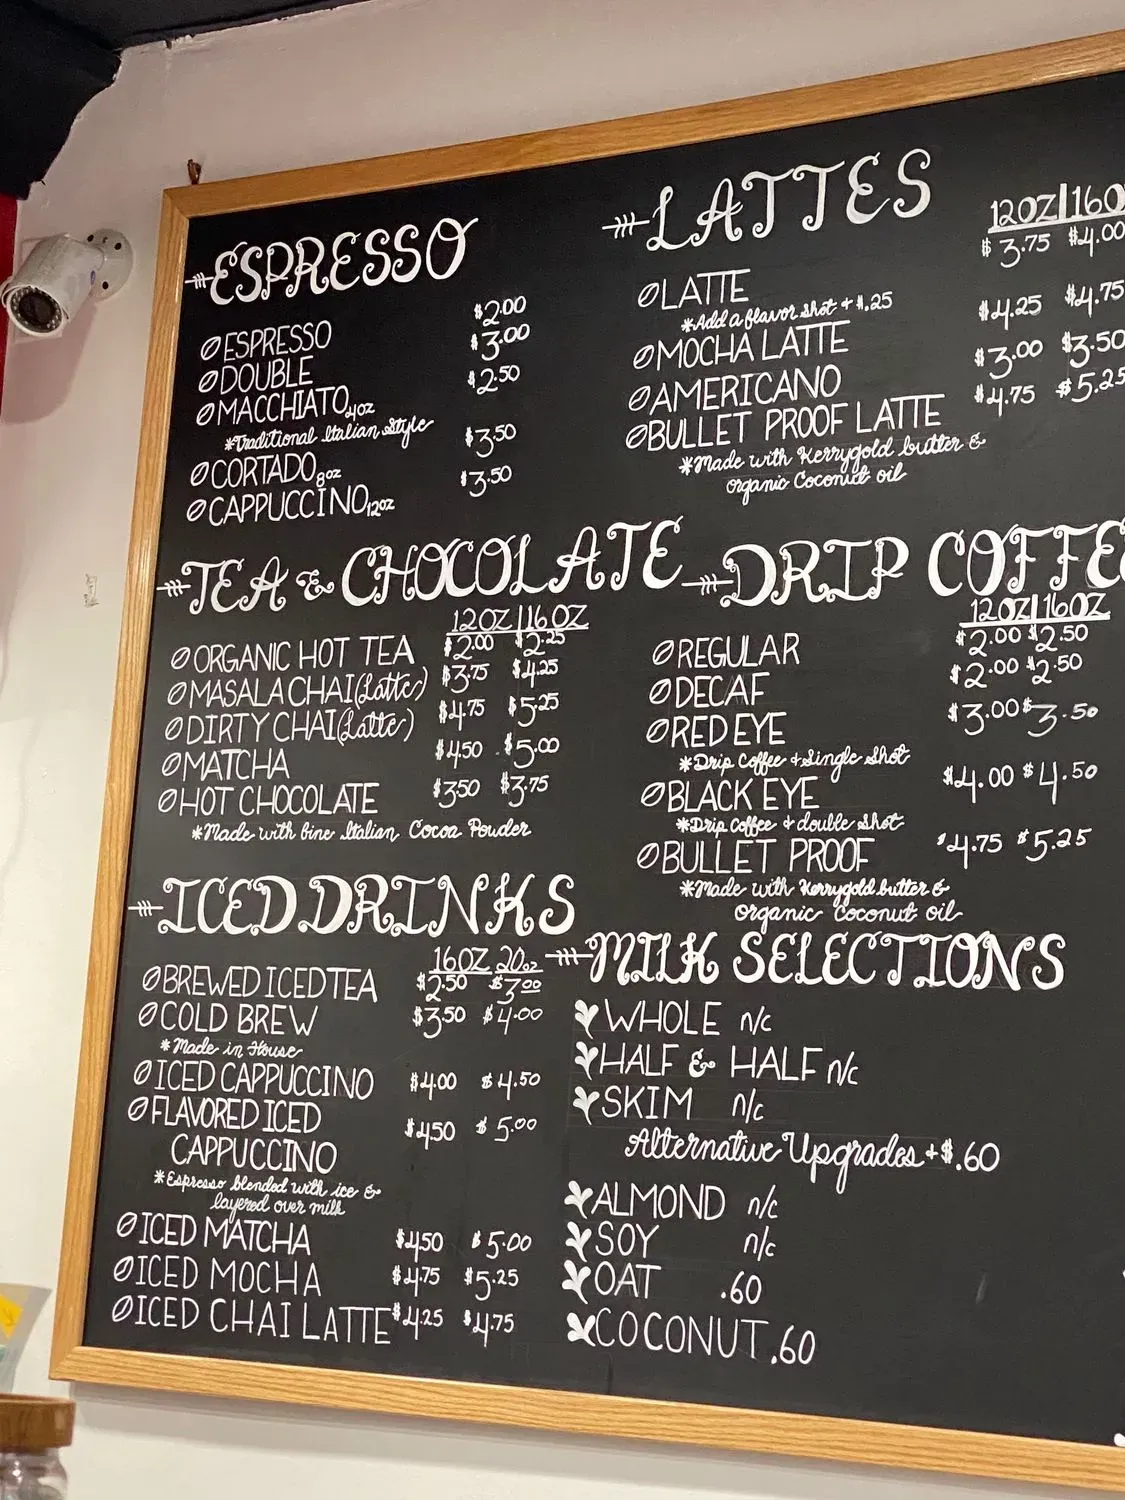 ESPRESSO
ESPRESSO $2.00
DOUBLE $3.00
MACCHIATO 4oz $2.50
*Traditional Italian Style
CORTADO 8oz $3.50
CAPPUCCINO 12oz $3.50
LATTES
12OZ|16O
LATTE $3.75 $4.00
*Add a flavor shot + $.25
MOCHA LATTE $4.25 $4.75
AMERICANO $3.00 $3.50
BULLET PROOF LATTE $4.75 $5.25
*Made with Kerrygold butter &
organic Coconut oil
TEA & CHOCOLATE
12OZ|16OZ
ORGANIC HOT TEA $2.00 $2.25
MASALA CHAI (Latte) $3.75 $4.25
DIRTY CHAI (Latte) $4.75 $5.25
MATCHA $4.50 $5.00
HOT CHOCOLATE $3.50 $3.75
*Made with fine Italian Cocoa Powder
DRIP COFFEE
12OZ|16OZ
REGULAR $2.00 $2.50
DECAF $2.00 $2.50
RED EYE $3.00 $3.50
*Drip Coffee + Single Shot
BLACK EYE $4.00 $4.50
*Drip Coffee + double shot
BULLET PROOF $4.75 $5.25
*Made with Kerrygold butter &
organic Coconut oil
ICED DRINKS
16OZ 20oz
BREWED ICED TEA $2.50 $3.00
COLD BREW $3.50 $4.00
*Made in House
ICED CAPPUCCINO $4.00 $4.50
FLAVORED ICED $4.50 $5.00
CAPPUCCINO
*Espresso blended with ice &
layered over milk
ICED MATCHA $4.50 $5.00
ICED MOCHA $4.75 $5.25
ICED CHAI LATTE $4.25 $4.75
MILK SELECTIONS
WHOLE n/c
HALF & HALF n/c
SKIM n/c
Alternative Upgrades +$.60
ALMOND n/c
SOY n/c
OAT .60
COCONUT .60